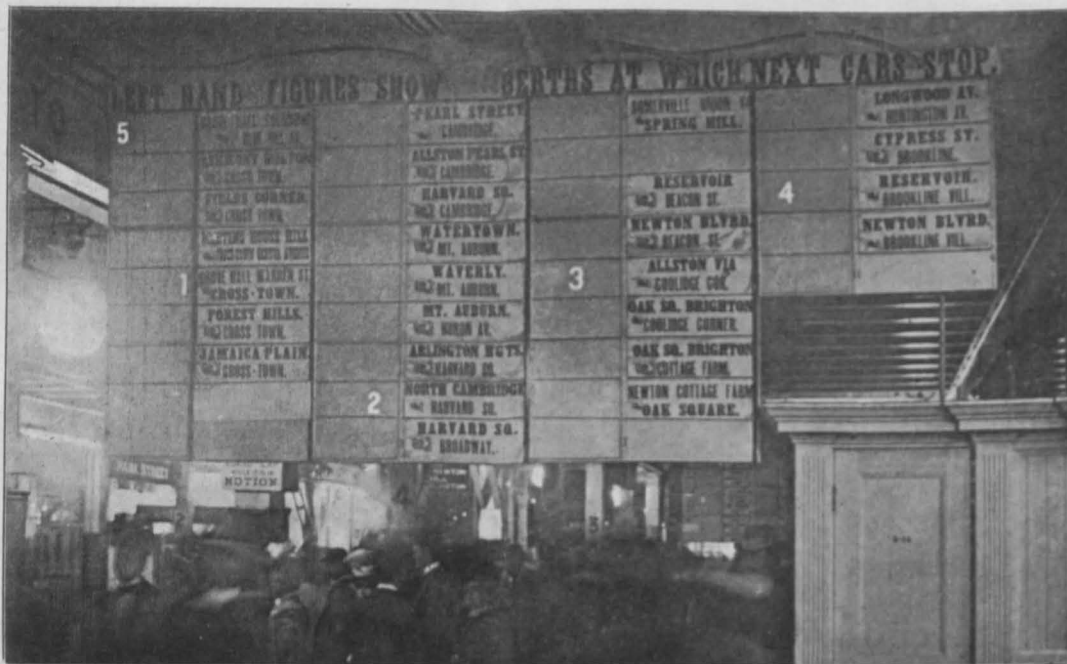 LEFT HAND FIGURES SHOW BERTHS AT WHICH NEXT CARS STOP.
5
CROSS TOWN.
FIELDS CORNER.
CROSS TOWN.
MEETING HOUSE HILL
1
WARREN ST.
CROSS-TOWN.
FOREST HILLS.
CROSS TOWN.
JAMAICA PLAIN.
CROSS-TOWN.
PEARL STREET
CAMBRIDGE.
ALLSTON PEARL ST
CAMBRIDGE.
HARVARD SQ.
CAMBRIDGE.
WATERTOWN.
MT. AUBURN.
WAVERLY.
MT. AUBURN.
MT. AUBURN.
HURON AV.
ARLINGTON HGTS.
HARVARD SQ.
2
NORTH CAMBRIDGE
HARVARD SQ.
HARVARD SQ.
BROADWAY.
SOMERVILLE UNION SQ
SPRING HILL.
RESERVOIR
BEACON ST.
NEWTON BLVRD.
BEACON ST.
3
ALLSTON VIA
COOLIDGE COR.
OAK SQ. BRIGHTON
COOLIDGE CORNER.
OAK SQ. BRIGHTON
COTTAGE FARM.
NEWTON COTTAGE FARM
OAK SQUARE.
LONGWOOD AV.
HUNTINGTON AV.
CYPRESS ST.
BROOKLINE.
4
RESERVOIR.
BROOKLINE VILL.
NEWTON BLVRD.
BROOKLINE VILL.
PARK STREET
NOTION
3